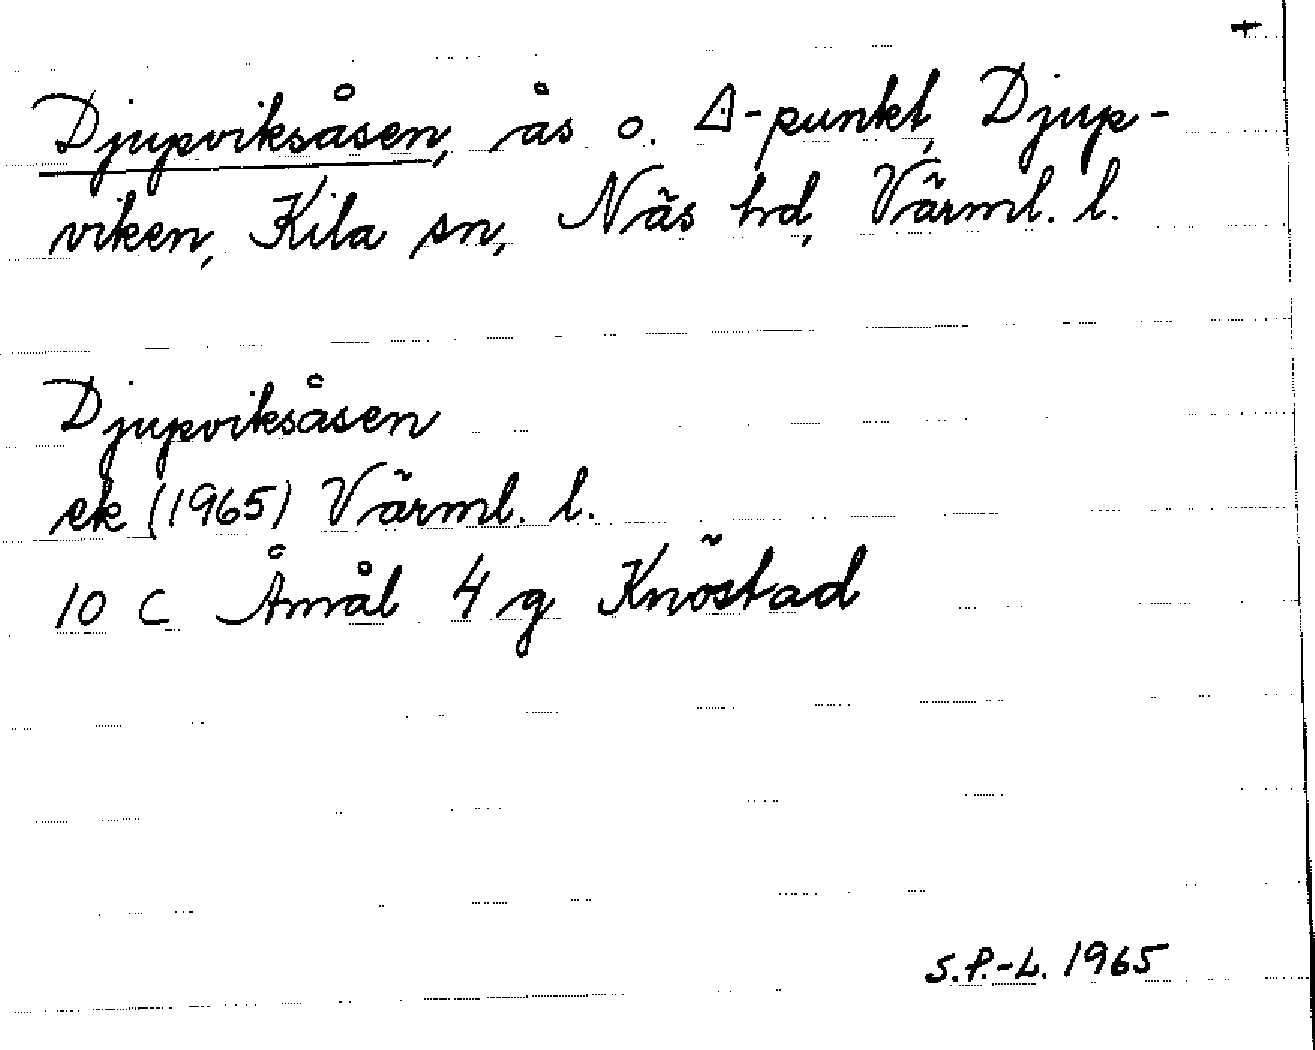 Djupviksåsen, ås o. △-punkt, Djup-
viken, Kila sn, Näs hd, Värml. l.
Djupviksåsen
ek (1965) Värml. l.
10 C Åmål 4 g Knöstad
S.P.-L. 1965